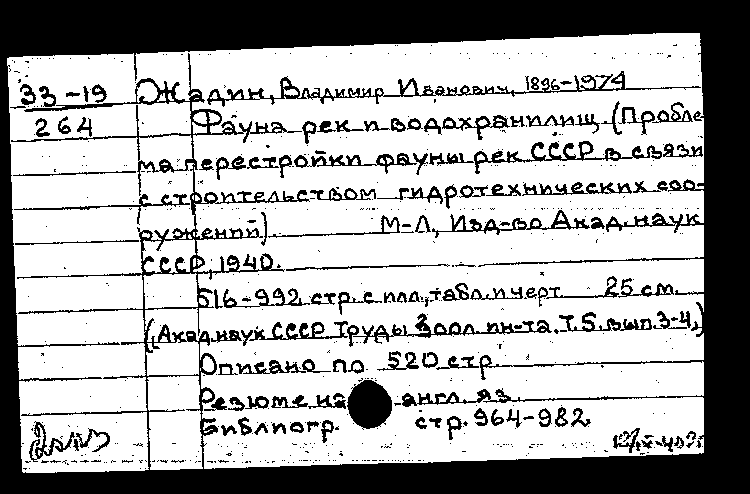 33-19 Жадин, Владимир Иванович, 1896-1974
264 Фауна рек и водохранилищ. (Пробле-
ма перестройки фауны рек СССР в связи
с строительством гидротехнических соо-
ружений). М-Л, Изд-во Акад. наук
СССР, 1940.
516-992 стр. с илл., табл. и черт. 25 см.
(Акад. наук СССР Труды Зоол. ин-та. Т. 5. вып. 3-4.)
Описано по 520 стр.
Резюме на англ. яз.
Библиогр. стр. 964-982.
2 экз